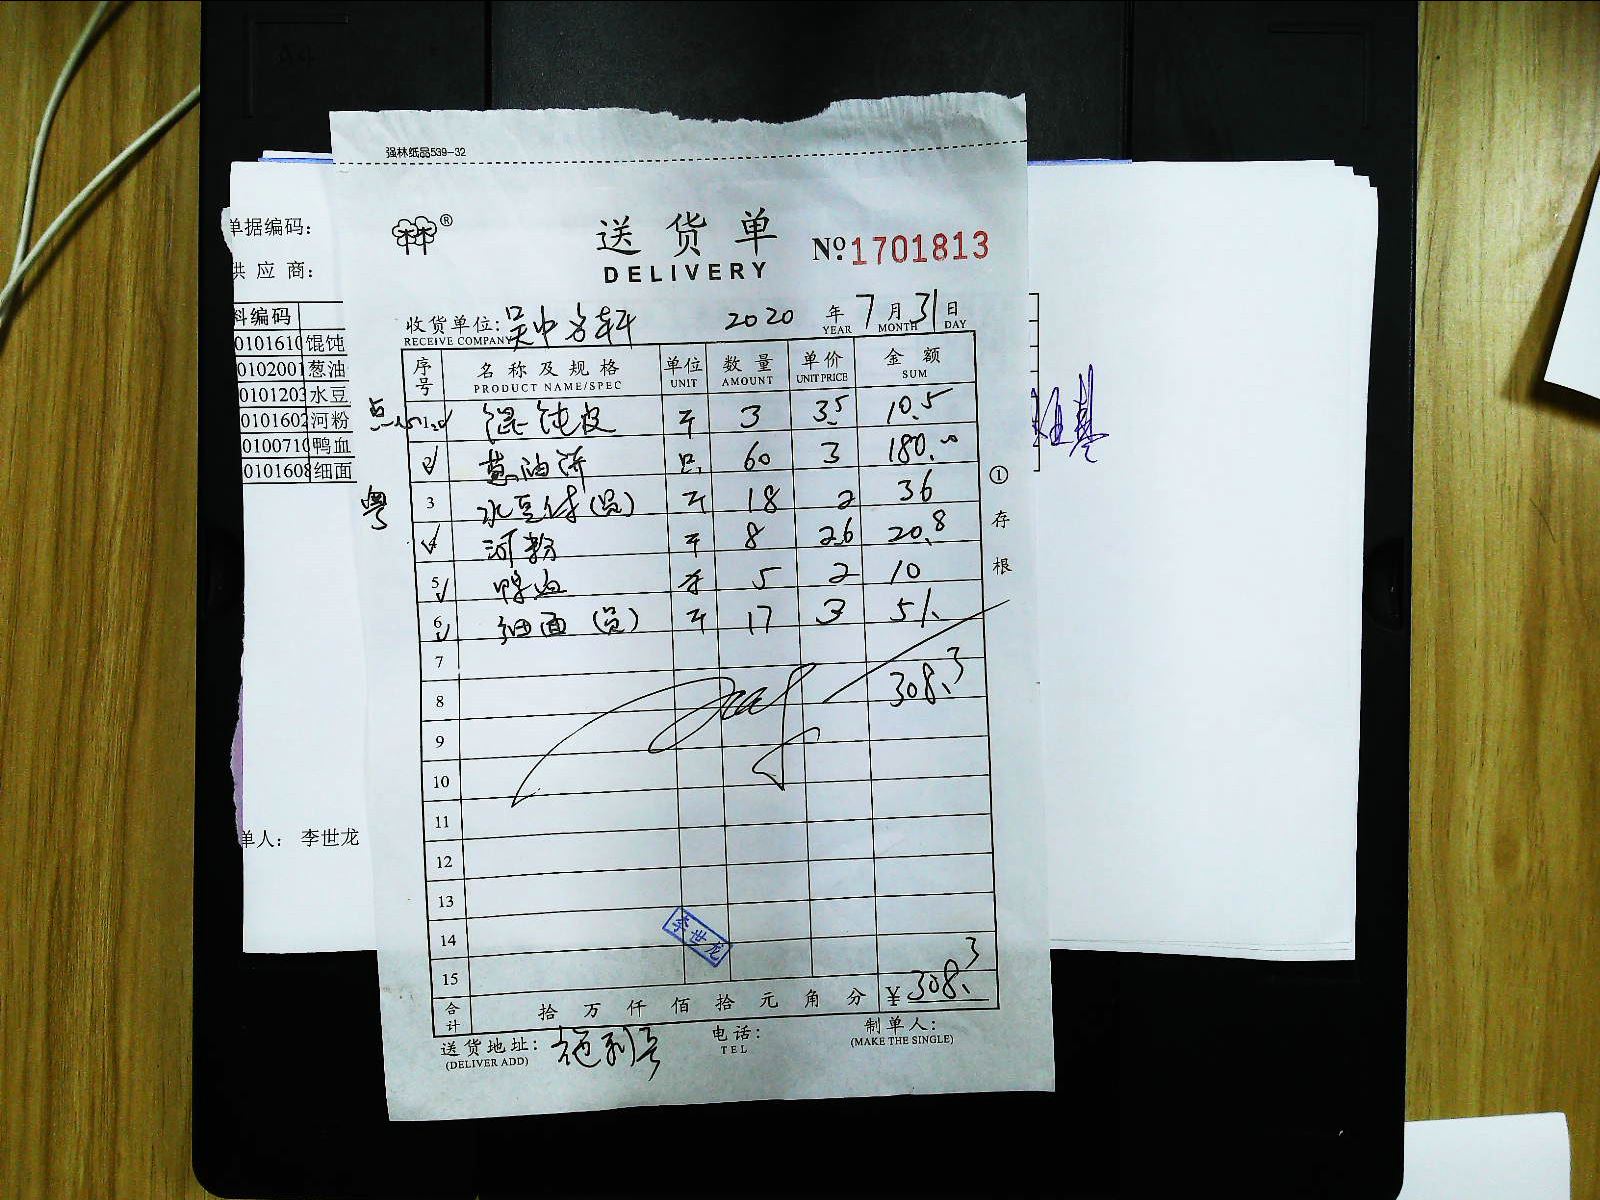 A4
强林纸品539-32
林®
送货单
DELIVERY
№1701813
收货单位: 吴中名轩 2020 年 7 月 31 日
RECEIVE COMPANY YEAR MONTH DAY
序号 名称及规格 单位 数量 单价 金额
PRODUCT NAME/SPEC UNIT AMOUNT UNIT PRICE SUM
馄饨皮 斤 3 3.5 10.5
2 葱油饼 只 60 3 180.00
3 水豆付(员) 斤 18 2 36
4 河粉 斤 8 2.6 20.8
5 鸭血 5 2 10
6 细面(员) 斤 17 3 51.
7
8 308.3
9
10
11
12
13
14
15
合计 拾万仟佰拾元角分 ¥308.3
送货地址: 电话: 制单人:
(DELIVER ADD) TEL (MAKE THE SINGLE)
李世龙
①存根
点
粤
单据编码:
供应商:
料编码
0101610 馄饨
0102001 葱油
0101203 水豆
0101602 河粉
0100710 鸭血
0101608 细面
单人: 李世龙